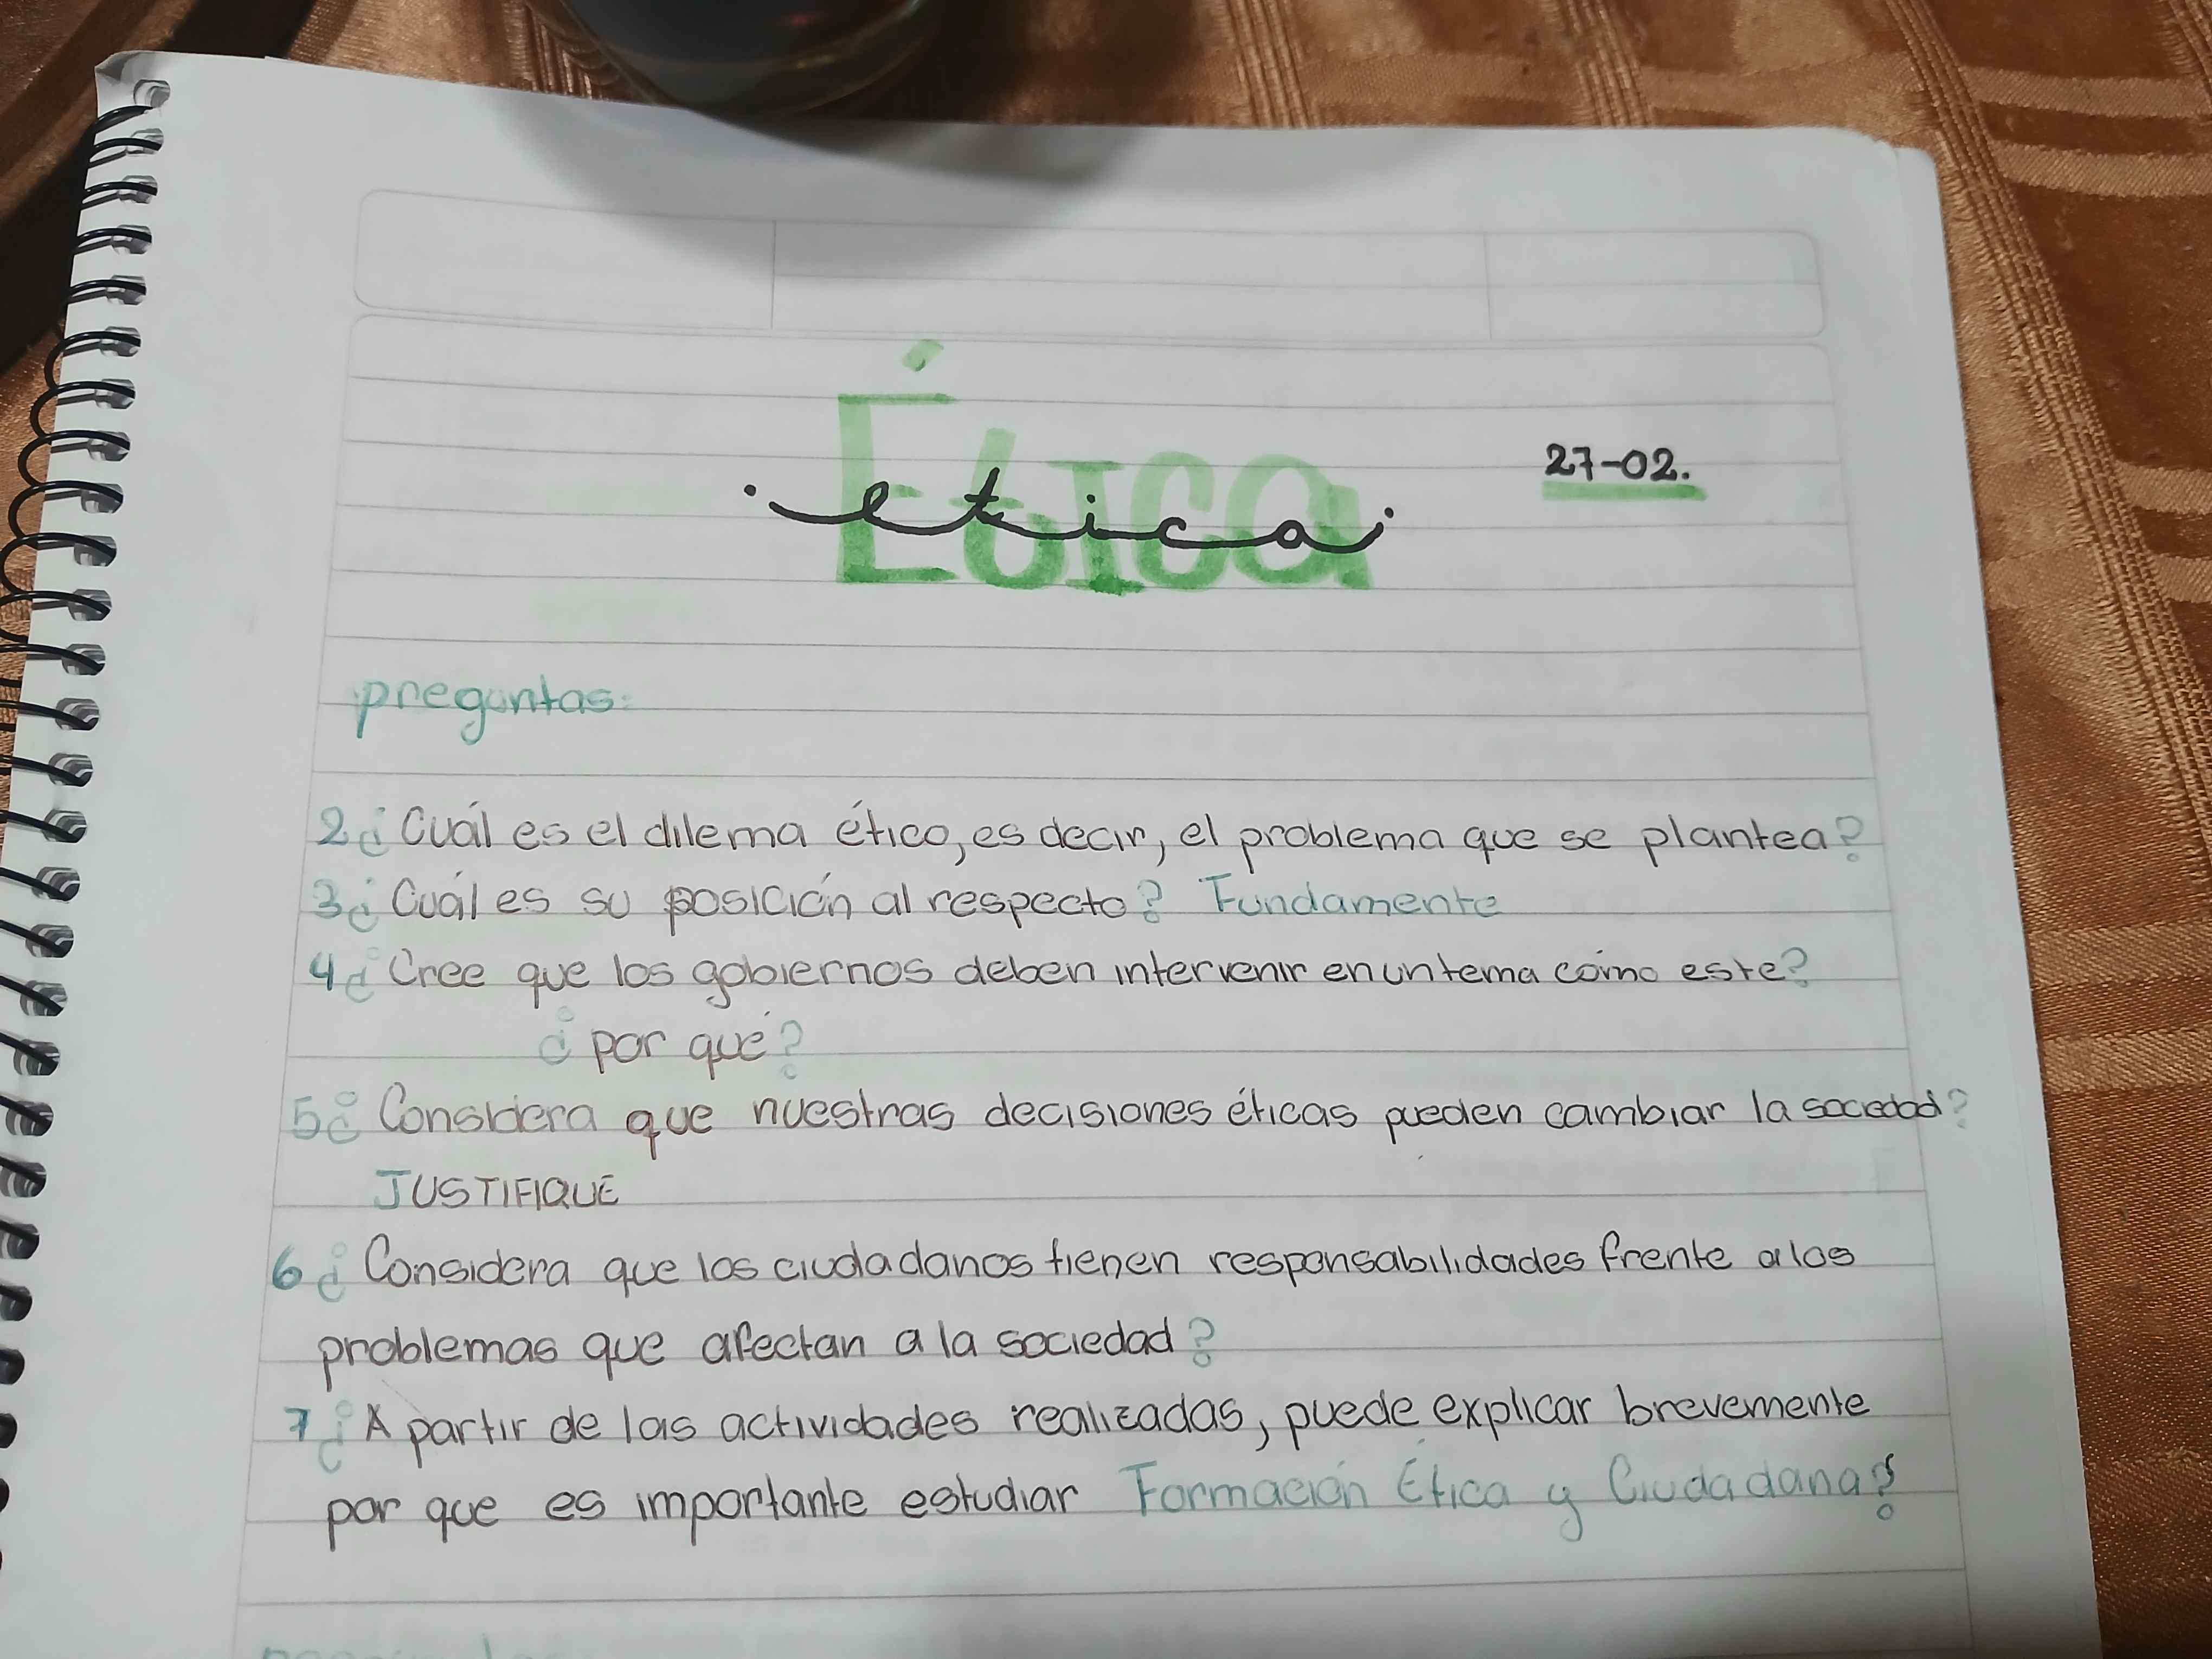 Ética
·etica·
27-02.
preguntas:
2¿ Cuál es el dilema ético, es decir, el problema que se plantea?
3¿ Cuál es su posición al respecto? Fundamente
4¿ Cree que los gobiernos deben intervenir en un tema cómo este?
¿por qué?
5¿ Considera que nuestras decisiones éticas pueden cambiar la sociedad?
JUSTIFIQUE
6¿ Considera que los ciudadanos tienen responsabilidades frente a los
problemas que afectan a la sociedad?
7¿ A partir de las actividades realizadas, puede explicar brevemente
por que es importante estudiar Formación Ética y Ciudadana?